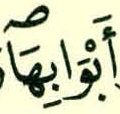 أَبْوَابِهَا ۖ